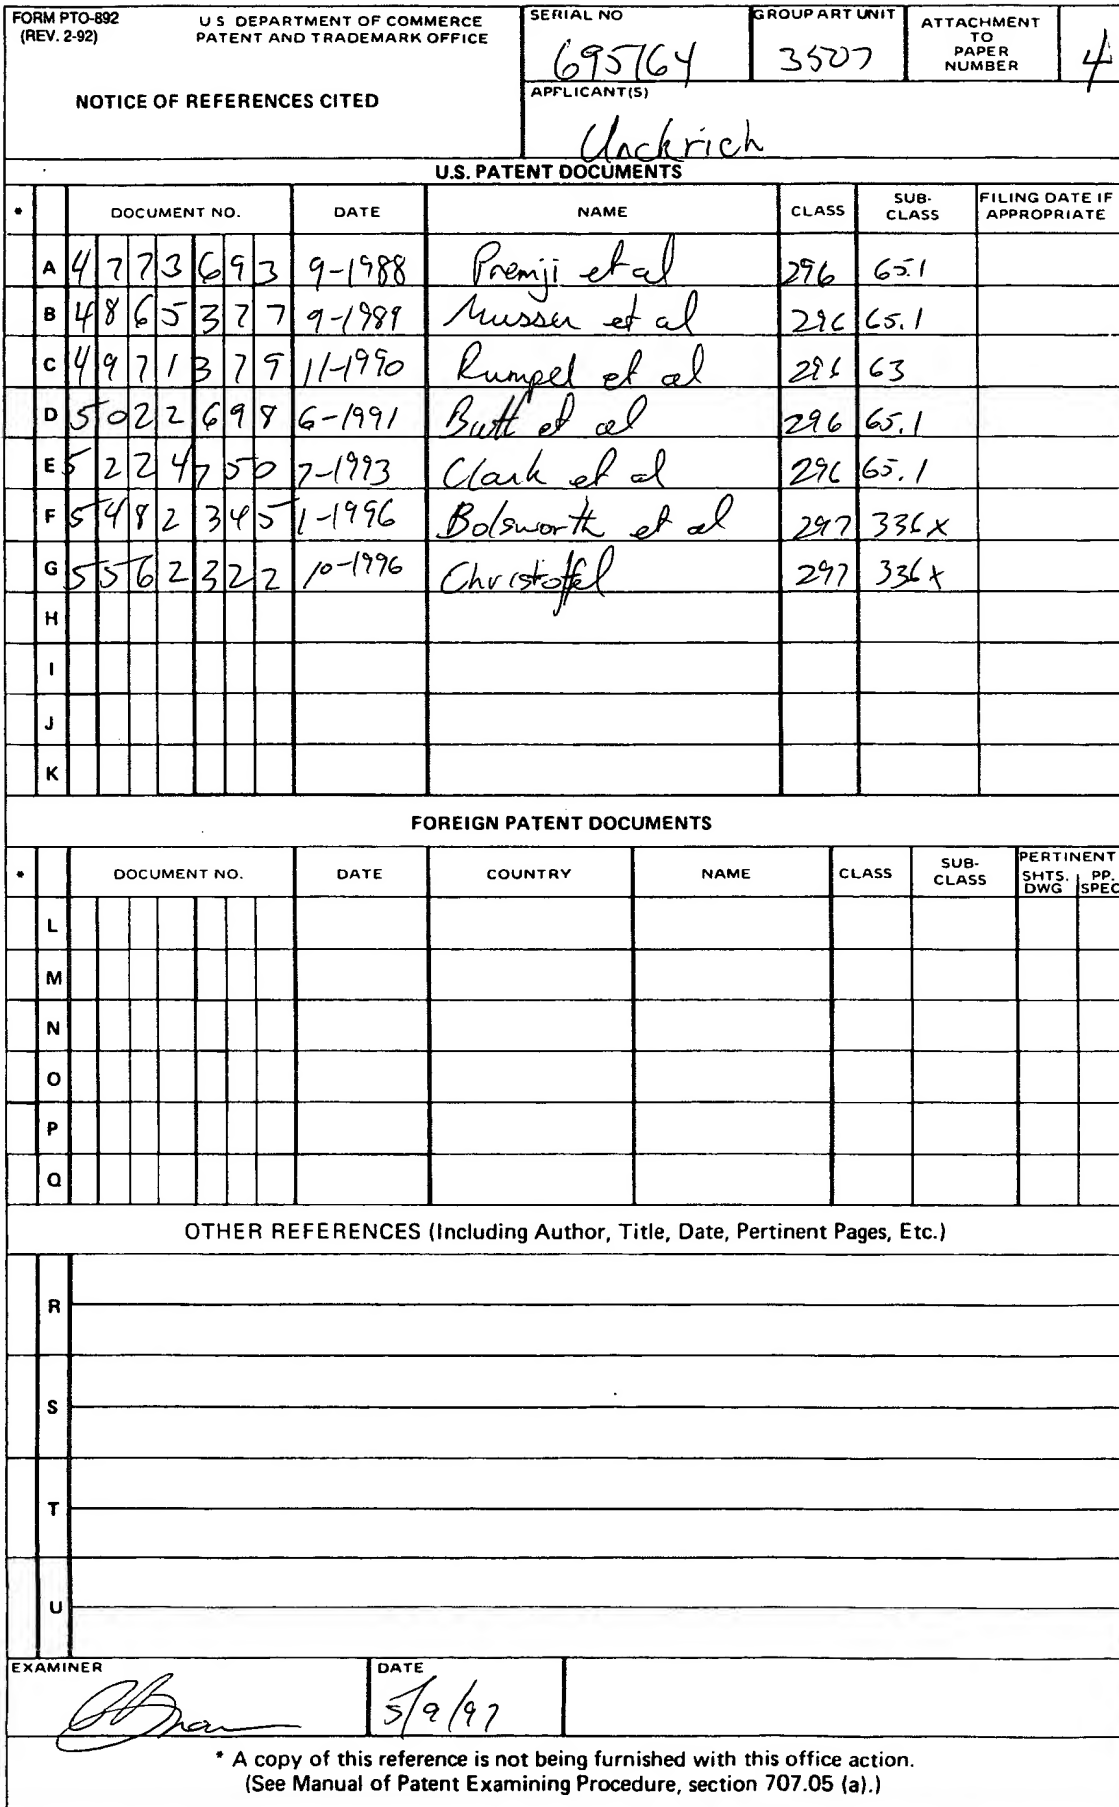 FORM PTO-892
(REV. 2-92)
U S DEPARTMENT OF COMMERCE
PATENT AND TRADEMARK OFFICE
NOTICE OF REFERENCES CITED
SERIAL NO
695764
GROUP ART UNIT
3507
ATTACHMENT
TO
PAPER
NUMBER
4
APPLICANT(S)
Unckrich
U.S. PATENT DOCUMENTS
* DOCUMENT NO. DATE NAME CLASS SUB-CLASS FILING DATE IF APPROPRIATE
A 4773693 9-1988 Premji et al 296 65.1
B 4865377 9-1989 Musser et al 296 65.1
C 4971379 11-1990 Rumpel et al 296 63
D 5022698 6-1991 Butt et al 296 65.1
E 5224750 7-1993 Clark et al 296 65.1
F 5482345 1-1996 Bolsworth et al 297 336x
G 5562322 10-1996 Christoffel 297 336x
H
I
J
K
FOREIGN PATENT DOCUMENTS
* DOCUMENT NO. DATE COUNTRY NAME CLASS SUB-CLASS PERTINENT SHTS. DWG PP. SPEC
L
M
N
O
P
Q
OTHER REFERENCES (Including Author, Title, Date, Pertinent Pages, Etc.)
R
S
T
U
EXAMINER
DATE
5/9/97
* A copy of this reference is not being furnished with this office action.
(See Manual of Patent Examining Procedure, section 707.05 (a).)